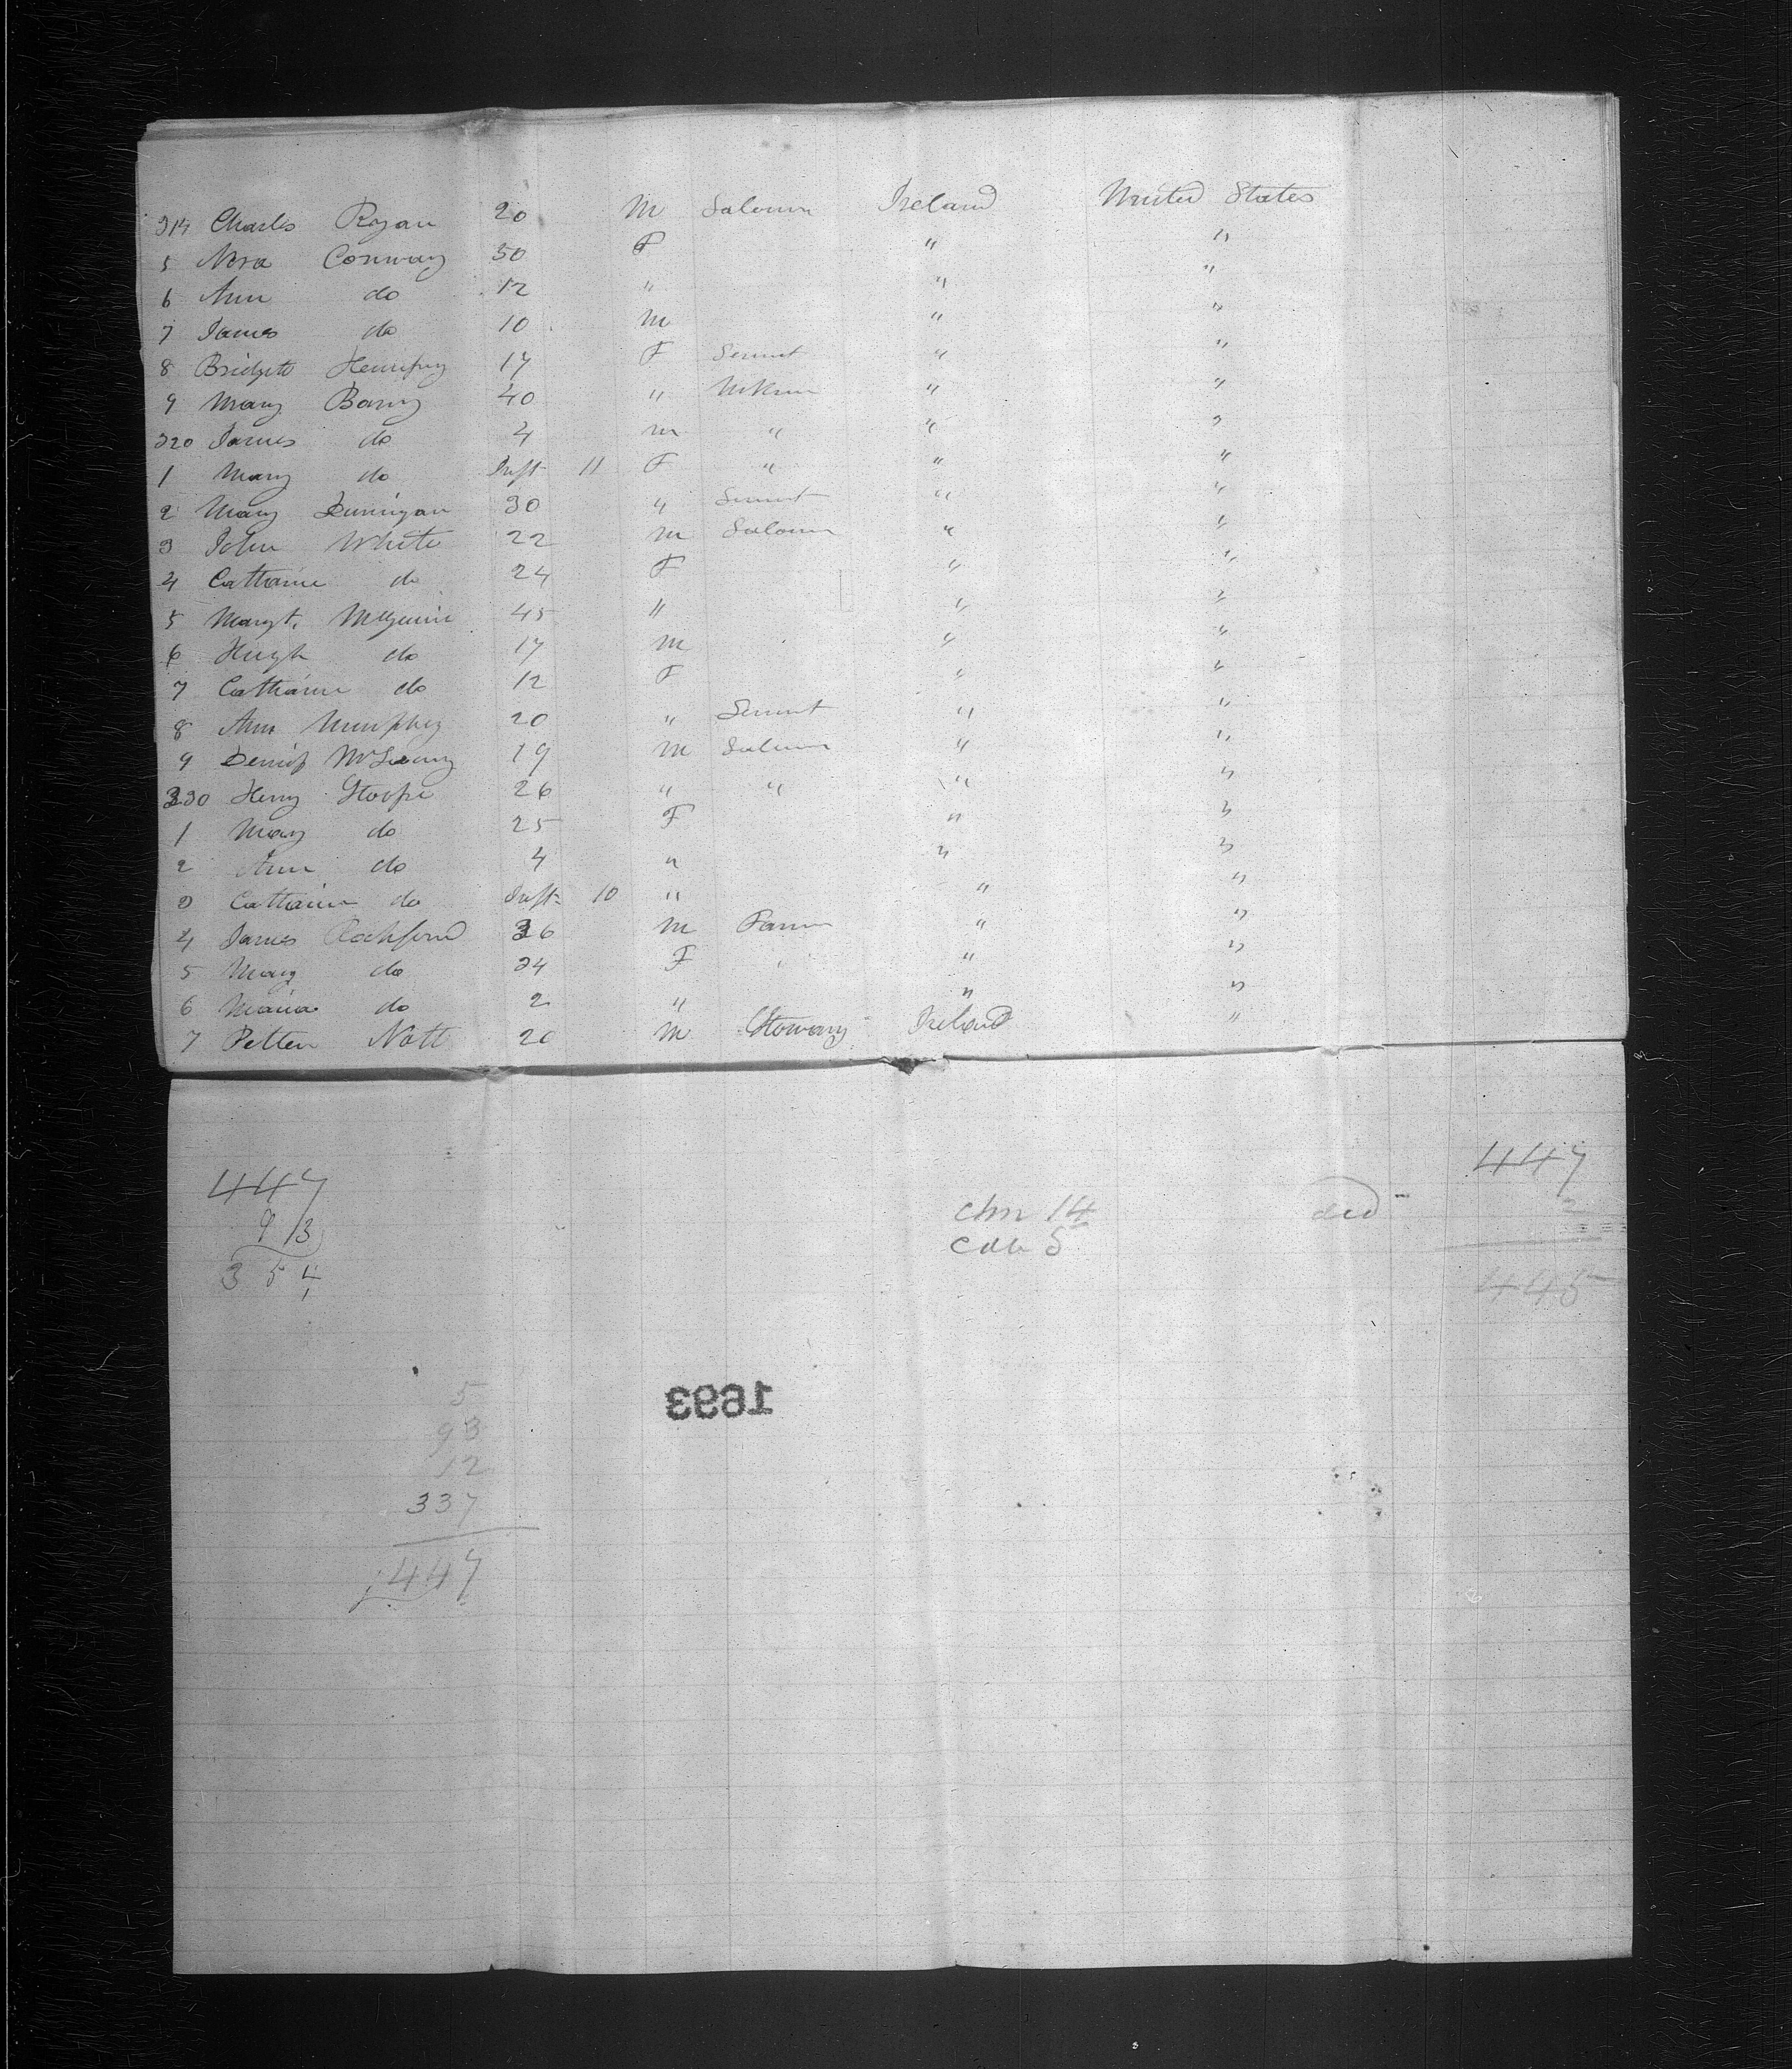 314 Charles Ryan 20 M Labour Ireland United States
5 Nora Conway 50 F " "
6 Ann do 12 " " "
7 James do 10 M " "
8 Bridget 17 F Servnt " "
9 Mary Barry 40 " " "
320 James do 4 M " " "
1 Mary do Inft 11 F " " "
2 Mary Dunnigan 30 " Servnt " "
3 John White 22 M Labour " "
4 Catharine do 24 F " "
5 Margt. McGuire 45 " " "
6 Hugh do 17 M " "
7 Catharine do 12 F " "
8 Ann Murphey 20 " Servnt " "
9 Denis 19 M Labour " "
330 Henry 26 " " " "
1 Mary do 25 F " "
2 Ann do 4 " " "
3 Catharine do Inft 10 " " "
4 James Rochford 36 M Farmr " "
5 Mary do 24 F " "
6 Maria do 2 " " "
7 Nott 20 M Stoway Ireland "
447
93
354
chn 14
5
ded
447
2
445
1693
5
93
12
337
447